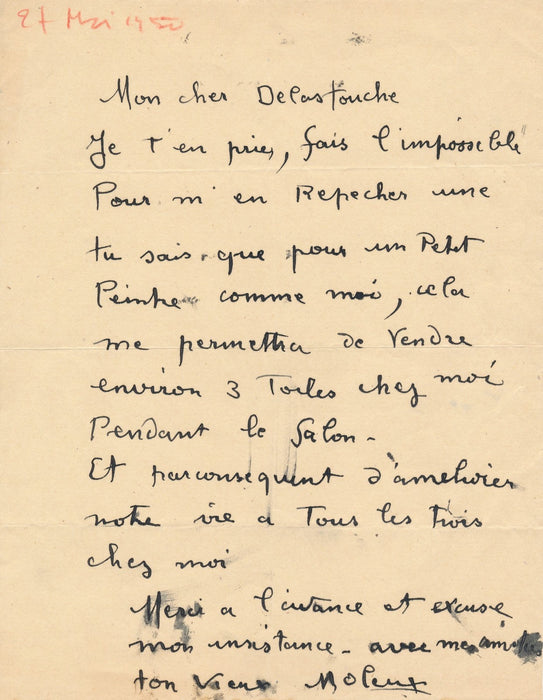 27 Mai 1950
Mon cher Delastouche
Je t'en prie, fais l'impossible
Pour m'en Repecher une
tu sais que pour un Petit
Peintre comme moi, cela
me permettra de Vendre
environ 3 Toiles chez moi
Pendant le Salon -
Et parconsequent d'ameliorer
notre vie a Tous les trois
chez moi
Merci a l'avance et excuse
mon insistance - avec mes amitiés
ton Vieux